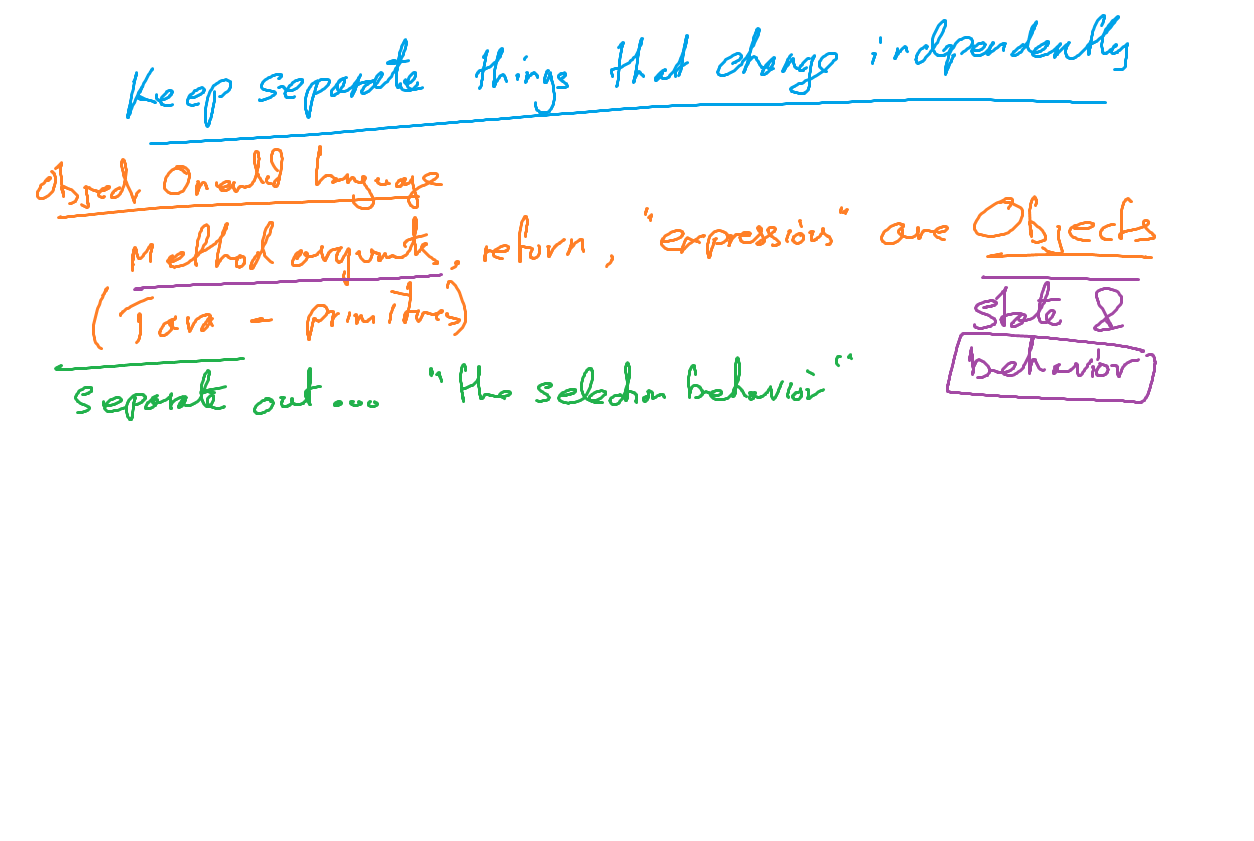 Keep separate things that change independently
Object Oriented Language
Method arguments, return, "expressions" are Objects
(Java - primitives)
State &
behavior
separate out... "the selection behavior"